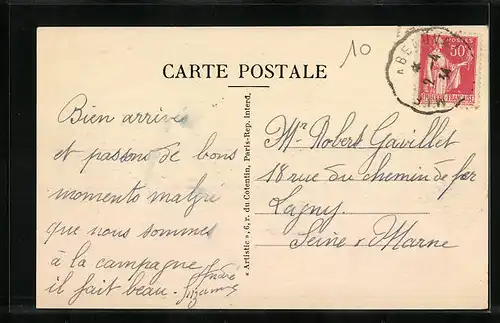 10
CARTE POSTALE
POSTES
50c
Bien arrivés
et passons de bons
moments malgré
que nous sommes
à la campagne
il fait beau.
André
Suzanne
« Artistic », 6, r. du Cotentin, Paris-Rep. interd.
Mr Robert Gavillet
18 rue du chemin de fer
Lagny
Seine & Marne